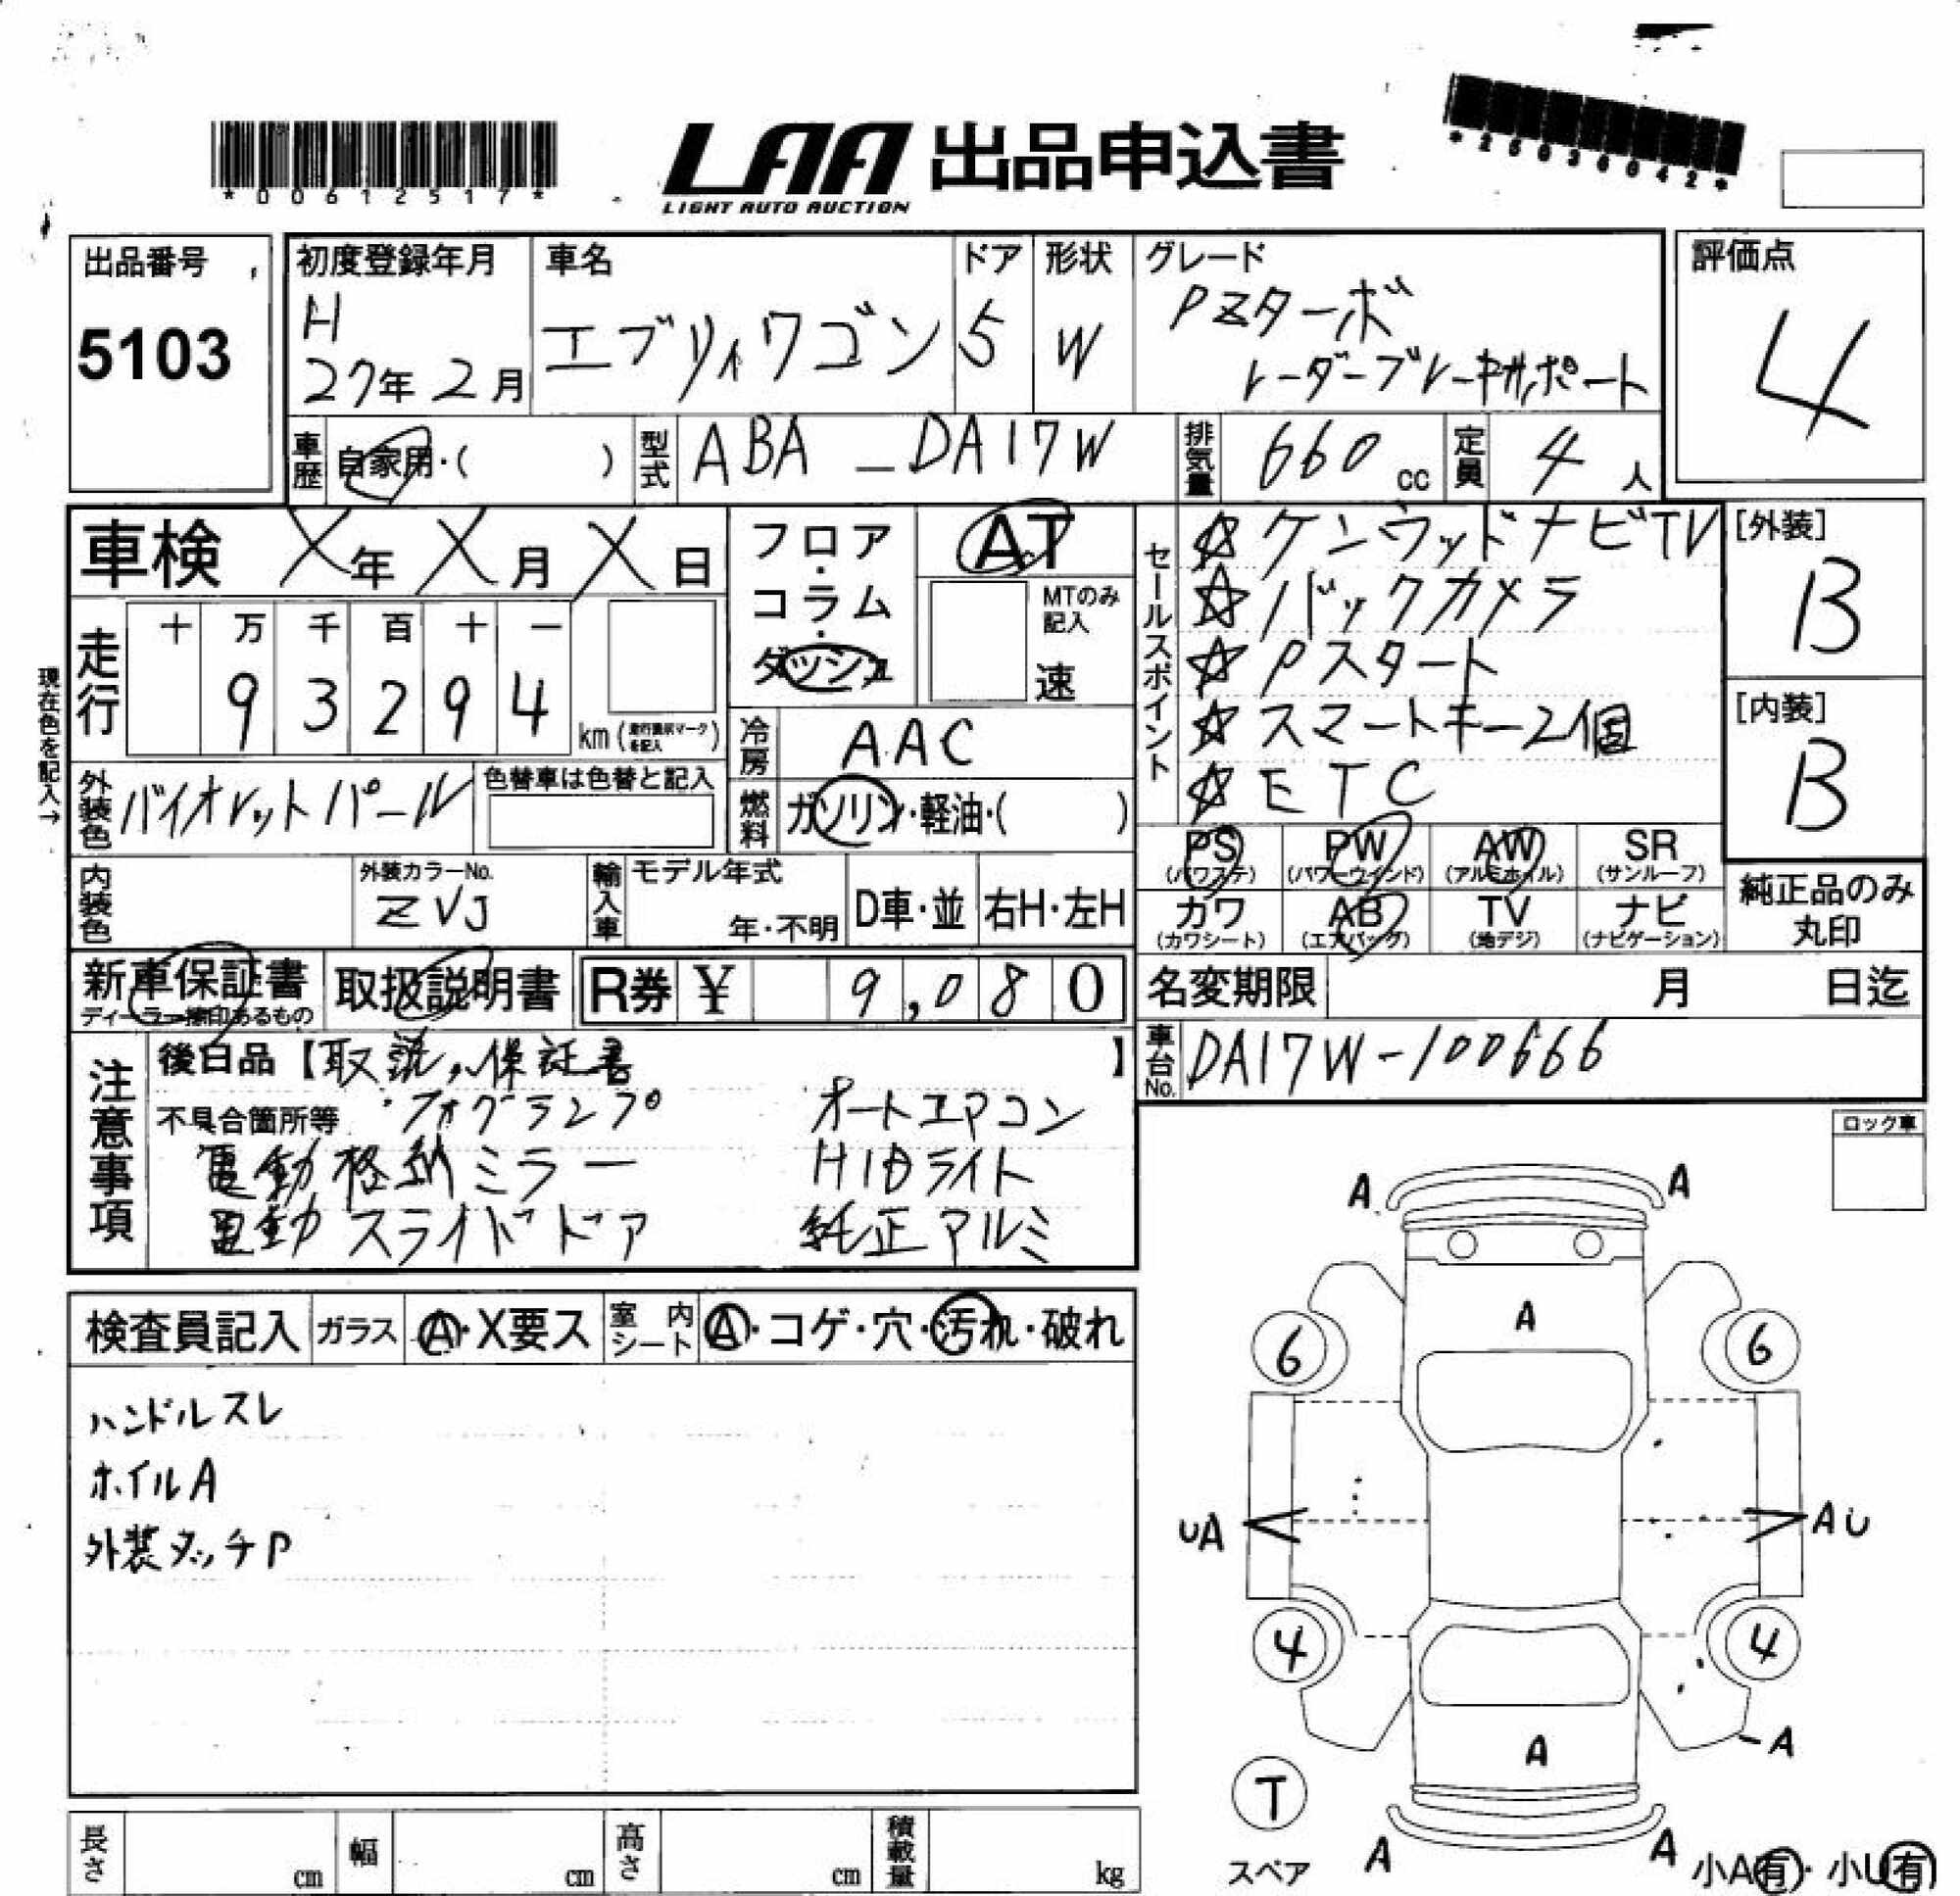 *00612517*
LAA 出品申込書
LIGHT AUTO AUCTION
*25036042*
出品番号
5103
初度登録年月
H
27年2月
車名
エブリィワゴン
ドア
5
形状
W
グレード
PZターボ
レーダーブレーキサポート
評価点
4
車歴
自家用・( )
型式
ABA-DA17W
排気量
660cc
定員
4人
車検 X年X月X日
フロア・コラム・ダッシュ
AT
MTのみ記入
速
走行
十 万 千 百 十 一
9 3 2 9 4
km(
)
現在色を記入→
冷房
AAC
外装色
バイオレットパール
色替車は色替と記入
燃料
ガソリン・軽油・( )
内装色
外装カラーNo.
ZVJ
輸入車
モデル年式
年・不明
D車・並
右H・左H
セールスポイント
☆ケンウッドナビTV
☆バックカメラ
☆Pスタート
☆スマートキー2個
☆ETC
[外装]
B
[内装]
B
PS PW AW SR
(パワステ) (パワーウインド) (アルミホイル) (サンルーフ)
カワ AB TV ナビ
(カワシート) (エアバッグ) (地デジ) (ナビゲーション)
純正品のみ
丸印
新車保証書
ディーラー捺印あるもの
取扱説明書
R券 ¥ 9,080
名変期限 月 日迄
車台No.
DA17W-100666
注意事項
後日品【取説,保証書】
不具合箇所等 フォグランプ オートエアコン
電動格納ミラー HIDライト
電動スライドドア 純正アルミ
ロック車
検査員記入 ガラス A・X要ス 室内シート A・コゲ・穴・汚れ・破れ
ハンドルスレ
ホイルA
外装タッチP
A A
A
6 6
UA AU
4 4
A
-A
T
スペア
A A
小A有・小U有
長さ cm 幅 cm 高さ cm 積載量 kg